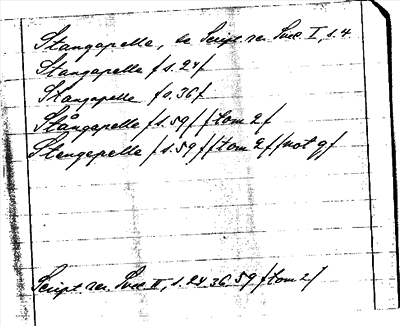 Stangapelle, se Script rer Svec I, s. 4
Stangapelle / s. 24 /
Stangapelle / s. 36 /
Stångapelle / s. 59 / / tom 2 /
Stengepelle / s. 59 / / tom 2 / / not g /
Script rer Svec II, s. 24 36 59 / tom 2 /